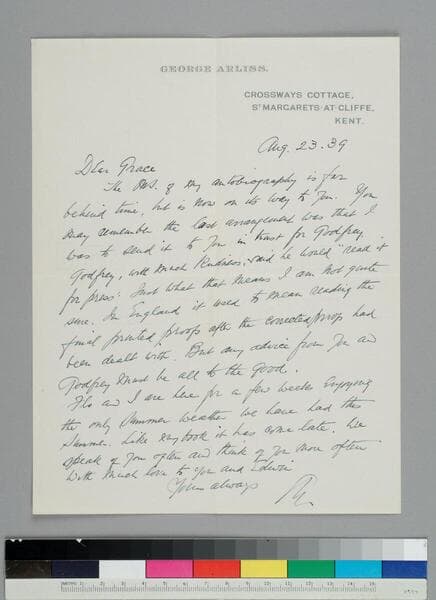 GEORGE ARLISS.
CROSSWAYS COTTAGE,
ST MARGARETS-AT-CLIFFE,
KENT.
Aug. 23. 39
Dear Grace
The MS. of my autobiography is far
behind time, but is now on its way to you. You
may remember the last arrangement was that I
was to send it to you in trust for Godfrey
Godfrey, with much kindness, said he would "read it
for press". Just what that means I am not quite
sure. In England it used to mean reading the
final printed proofs after the corrected proofs had
been dealt with. But any advice from you and
Godfrey must be all to the good.
Flo and I are here for a few weeks enjoying
the only summer weather we have had this
summer. Like my book it has come late. We
speak of you often and think of you more often
With much love to you and Edwin
Yours always